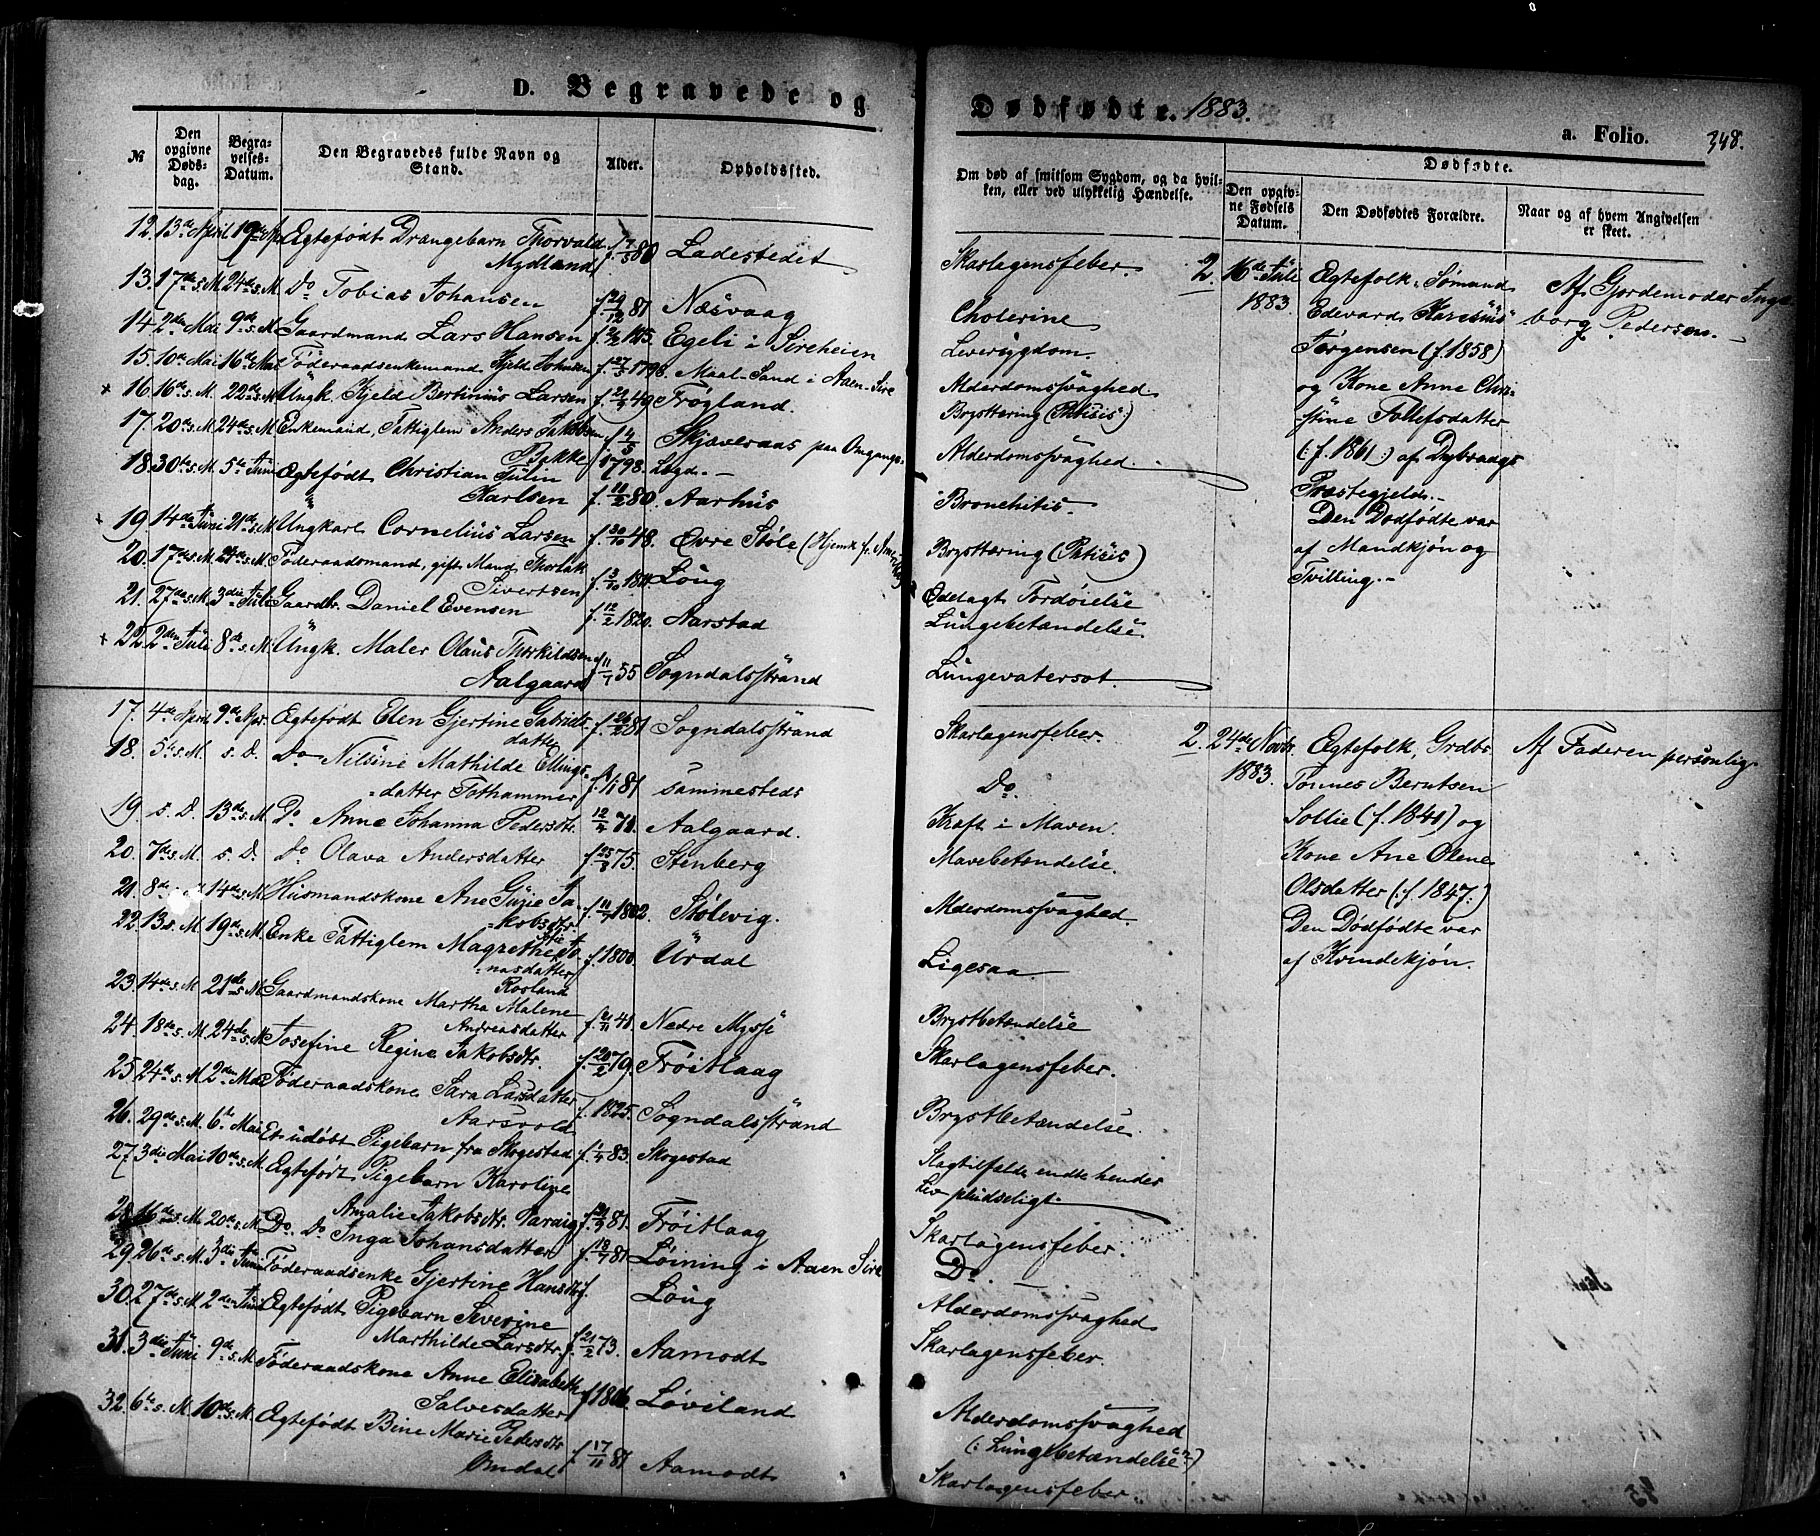 D. Begravede og Dødfødte. 1883.
a. Folio. 348.
№ | Den opgivne Døds-dag. | Begra-velses-Datum. | Den Begravedes fulde Navn og Stand. | Alder. | Opholdssted.
Om død af smitsom Sygdom, og da hvil-ken, eller ved ulykkelig Hændelse. | Dødfødte. | Den opgiv-ne Fødsels Datum. | Den Dødfødtes Forældre. | Naar og af hvem Angivelsen er skeet.
12. 13de April 19de Ap. Egtefødt Drangebarn Thorvald
Mydland f. 80 Ladestedet Skarlagensfeber.
13. 17de s. M. 24de s. M. Do Tobias Johansen f. 29/12 81 Næsvaag Cholerine
14. 2den Mai 9de s. M. Gaardmand Lars Hansen Egeli i Sireheien Leversygdom.
15. 10de Mai 16de Mai Føderaadsenkemand Kjeld Johnsen f. 27/5 1798. Maal-Sand i Aaen-Sire Alderdomssvaghed.
16. 16de s. M. 22de s. M. Ungk. Kjeld Bertinius Larsen 49 Frøgland. Brysttæring (Phtisis:)
17. 20de s. M. 24de s. M. Enkemand, Fattiglem Anders Jakobsen
Bakke f. 4/5 1798. Skjæveraas paa Omgangs-
Lægd. Alderdomssvaghed.
18. 30te s. M. 5te Juni Egtefødt Christian Julin
Karlsen f. 80. Aarhus Bronchitis.
19. 14de Juni 21de s. M. Ungkarl Cornelius Larsen f. 30/10 48. Øvre Støle (Hjemk. fr. Amerika) Brysttæring (Phtisis)
20. 17de s. M. 24de s. M. Føderaadsmand, gift Mand, Thorlak
Sivertsen f. 3/10 Løug Ødelagt Fordøielse
21. 27de s. M. 3die Juli Gaardbr. Daniel Evensen f. 12/2 1820. Aarstad Lungebetændelse.
22. 2den Juli 8de s. M. Ungk. Maler Olaus Thorkildsen
Aalgaard f. 11/1 55 Sogndalsstrand Lungevatersot.
2. 16de Juli 1883. Egtefolk, Sømand
Edevard
Jørgensen (f. 1858)
og Kone Anne Chri-
stine Tollefsdatter
(: f. 1861:) af Dybvaags
Præstegjeld.
Den Dødfødte var
af Mandkjøn og
Tvilling.
Af Gjordemoder Inge-
borg Pedersen.
17. 4de April 9de Apr. Egtefødt Elen Gjertine Gabriels-
datter f. 26/2 81 Sogndalsstrand Skarlagensfeber.
18. 5te s. M. s. D. Do Nilsine Mathilde Ellings-
datter Tothammer 81 sammesteds Do.
19. s. D. 13de s. M. Do Anne Johanna Pedersdtr. Aalgaard. Kræft i Maven.
20. 7de s. M. s. D. Do Olava Andersdatter f. 25/8 75. Stenberg Mavebetændelse.
21. 8de 14de s. M. Husmandskone Ane Gurie Ja-
kobsdtr. f. 11/7 1802. Stølevig. Alderdomssvaghed.
22. 13. s. M. 19de s. M. Enke Fattiglem Magrethe Jo-
nasdatter
Rosland f. 1800. Urdal Ligesaa
23. 14de s. M. 21de s. M. Gaardmandskone Martha Malene
Andreasdatter f. 21/11 41. Nedre Mysse Brystbetændelse
24. 18de s. M. 24de s. M. Josefine Regine Jakobsdtr. f. 20/2 79. Frøitlaag Skarlagensfeber.
25. 24de s. M. 2den Mai Føderaadskone Sara Larsdatter
Aarsvold f. 1825. Sogndalsstrand Brystbetændelse.
26. 29de s. M. 6te Mai Et udøbt Pigebarn fra Skogestad f. 83. Skogestad Slagtilfælde endte hendes
Liv pludseligt
27. 3die Mai 10de s. M. Egtefødt Pigebarn Karoline
Amalie Jakobsdtr. 81. Frøitlaag Skarlagensfeber.
28. 16de s. M. 20de s. M. Do. Do Inga Johansdatter f. 18/7 81 Løining i Aaen Sire Do.
29. 26de s. M. 3die Juni Føderaadsenke Gjertine Hansdtr. f. Løug Alderdomssvaghed
30. 27de s. M. 2den Juni Egtefødt Pigebarn Severine
Marthilde Larsdtr. f. 21/2 73. Aamodt Skarlagensfeber.
31. 3die Juni 9de s. M. Føderaadskone Anne Elisabeth
Salvesdatter f. 1806. Løviland Alderdomssvaghed
(: Lungebetændelse?)
32. 6te s. M. 10de s. M. Egtefødt Bine Marie Pedersdtr.
Omdal f. 17/11 81 Aamodt Skarlagensfeber.
2. 24de Novbr. 1883. Egtefolk, Grdbr.
Tønnes Berntsen
Sollie (f. 1840) og
Kone Ane Olene
Olsdatter (: f. 1847:)
Den Dødfødte var
af Kvindekjøn.
Af Faderen personlig